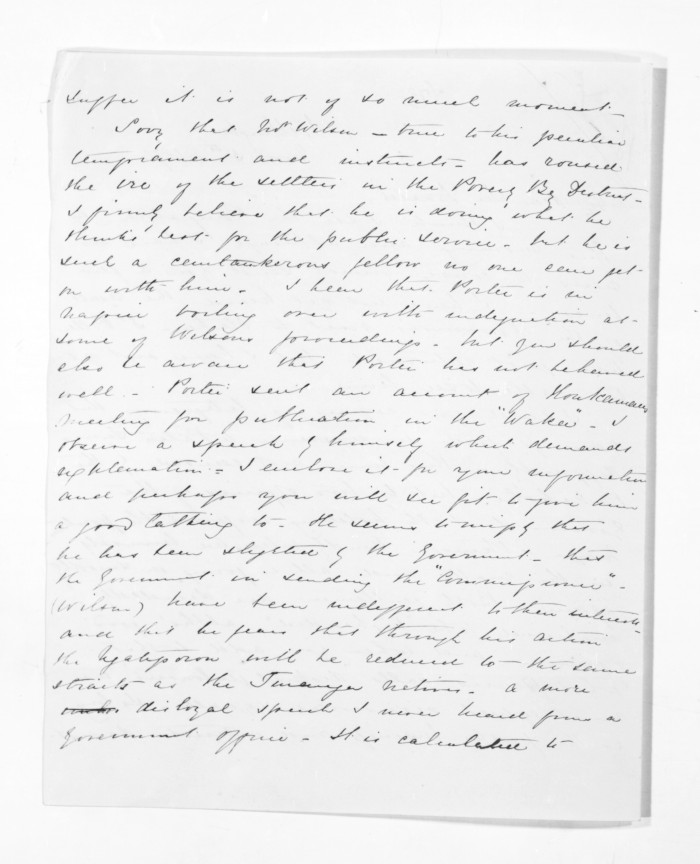 suffer it is not of so much moment -
Sorry that Mr Wilson - true to his peculiar
temprament and instincts - has roused
the ire of the settlers in the Poverty Bay District -
I firmly believe that he is doing what he
thinks best for the public service - but he is
such a cantankerous fellow no one can get
on with him. I hear that Porter is in
Napier boiling over with indignation at
some of Wilsons proceedings - but you should
also be aware that Porter has not behaved
well - Porter sent an account of Houkamaus
meeting for publication in the "Waka" - I
observe a speech by himself which demands
explanation - I enclose it for your information
and perhaps you will see fit to give him
a good talking to - He seems to imply that
he has been slighted by the Government - that
the Government in sending the "Commissioner" -
(Wilson) have been indifferent to their interests -
and that he fears that through his action
the Ngatiporou will be reduced to the same
straits as the Turanga natives - a more
disloyal speech I never heard from a
Government officer - It is calculated to